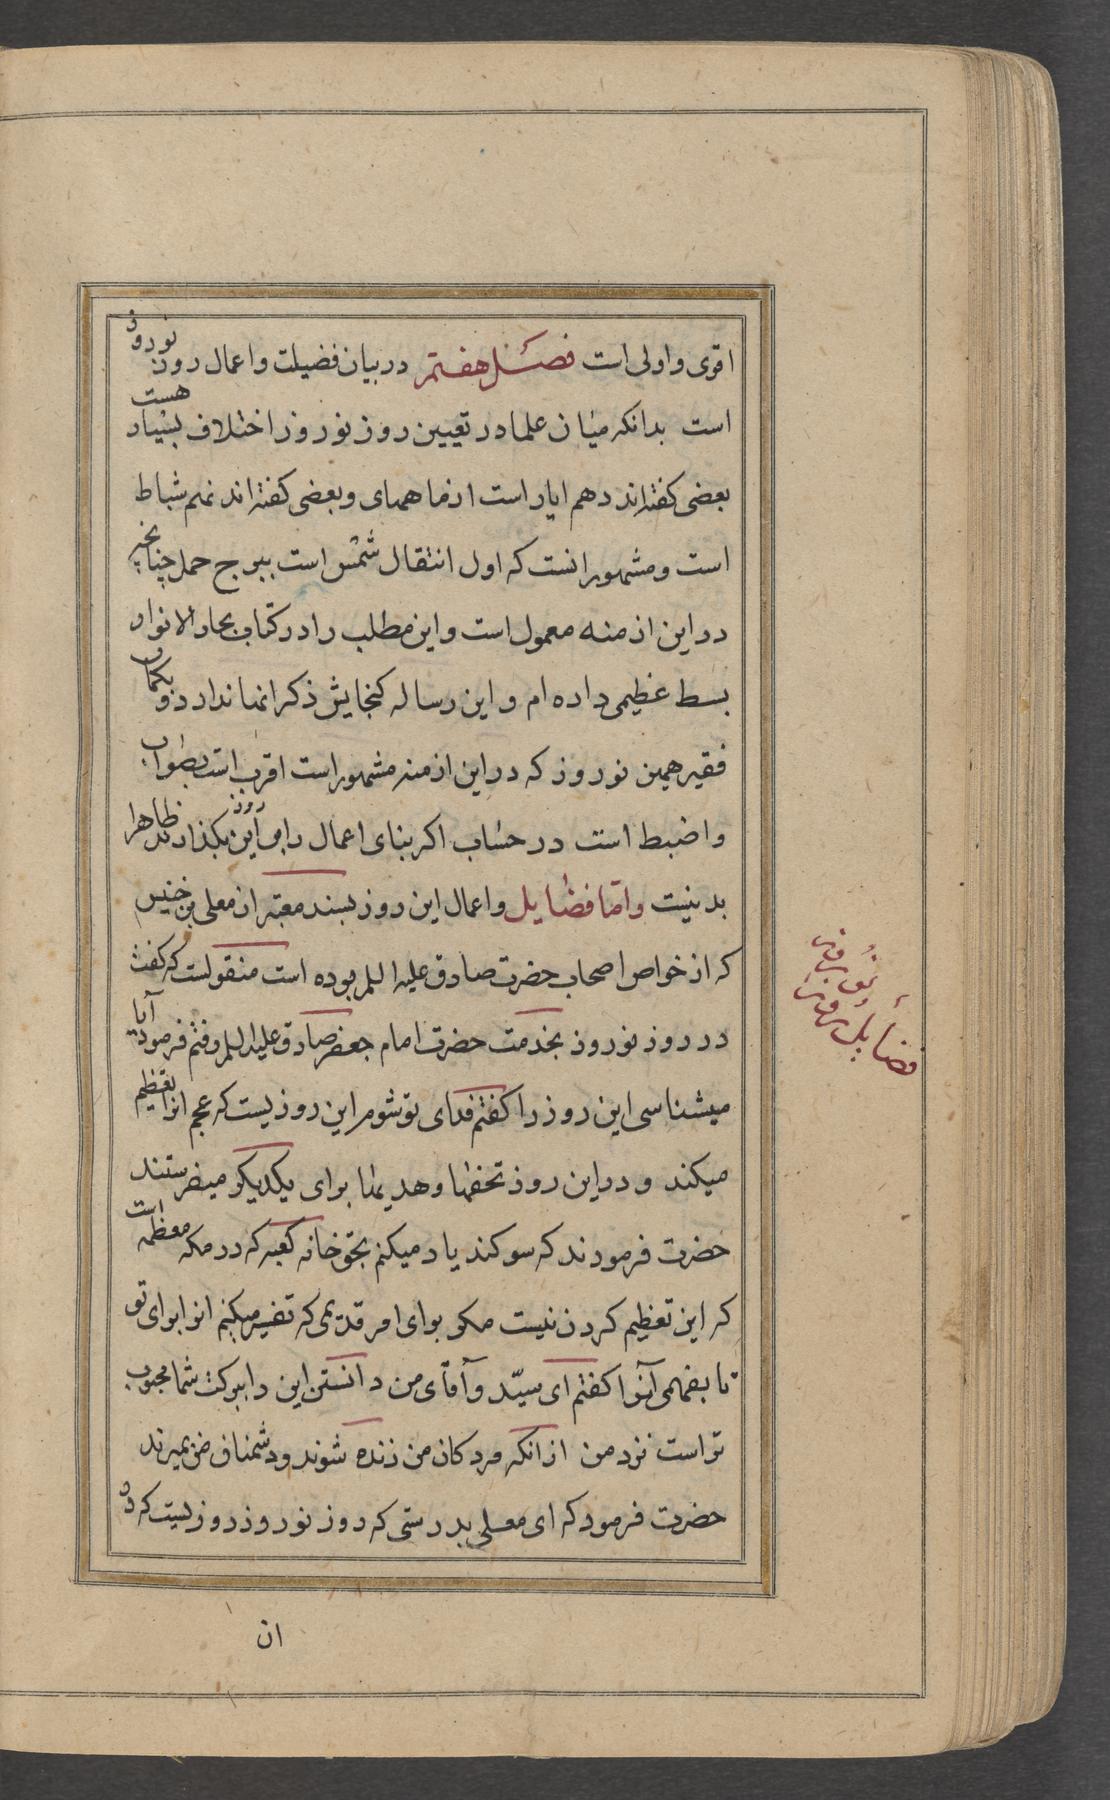 اقوی و اولی است فصل هفتم در بیان فضیلت و اعمال روز نوروز
است بدانکه میان علما در تعیین روز نوروز اختلاف بسیار هست
بعضی کفته‌اند دهم ایار است از ماههای و بعضی کفته‌اند نهم شباط
است و مشهور انست که اول انتقال شمس است ببرج حمل چنانچه
در این ازمنه معمول است و این مطلب را در کتاب بحار الانوار
بسط عظیمی داده ام و این رساله کنجایش ذکر انها ندارد و بکمان
فقیر همین نوروز که در این ازمنه مشهور است اقرب است بصواب
و اضبط است در حساب اکر بنای اعمال را بر این روز بکذارند ظاهرا
بد نیست و امّا فضایل و اعمال این روز بسند معتبر از معلی بن خنیس
که از خواص اصحاب حضرت صادق علیه السلم بوده است منقولست که کفت
در روز نوروز بخدمت حضرت امام جعفر صادق علیه السلم رفتم فرمود آیا
میشناسی این روز را کفتم فدای تو شوم این روزیست که عجم انرا تعظیم
میکند و در این روز تحفها و هدیها برای یکدیکر میفرستند
حضرت فرمودند که سوکند یاد میکنم بحق خانه کعبه که در مکه معظمه است
که این تعظیم کردن نیست مکر برای امر قدیمی که تفسیر میکنم انرا برای تو
تا بفهمی آنرا کفتم ای سیّد و آقای من دانستن این را ببرکت شما محبوب
تر است نزد من از انکه مردکان من زنده شوند و دشمنان من بمیرند
حضرت فرمود که ای معلی بدرستی که روز نوروز روزیست که در
ان
فضایل روز
نوروز